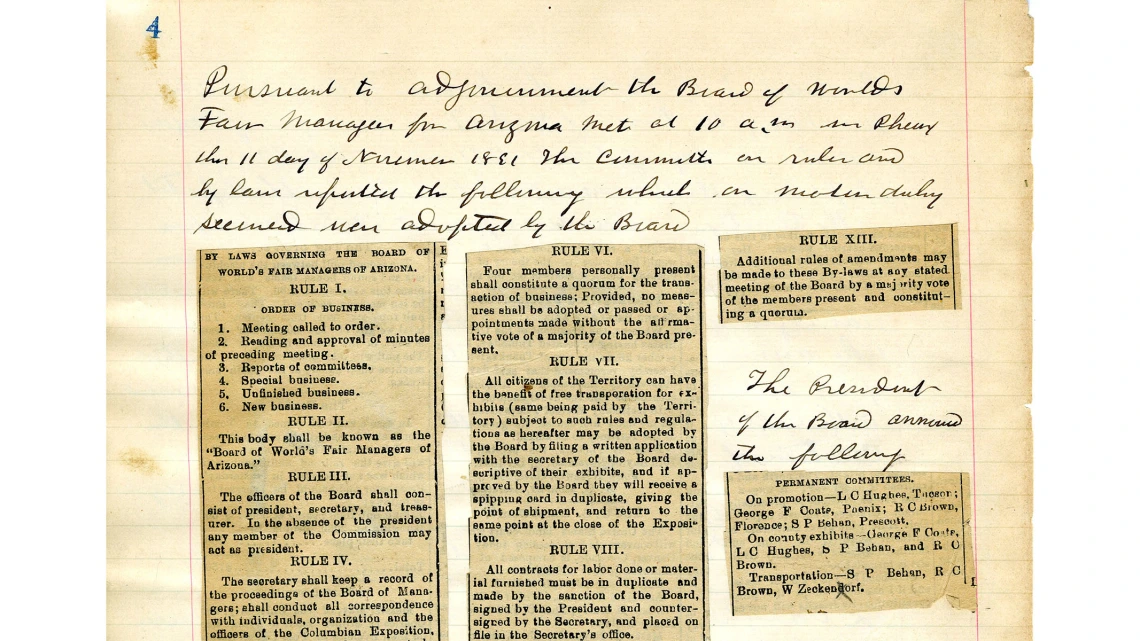 4
Pursuant to adjournment the Board of Worlds
Fair Managers for Arizona met at 10 a.m in Phenx
the 11 day of November 1891 The Committe on rules and
by laws reported the following which on motion duly
seconed were adopted by the Board
BY LAWS GOVERNING THE BOARD OF
WORLD'S FAIR MANAGERS OF ARIZONA.
RULE I.
ORDER OF BUSINESS.
1. Meeting called to order.
2. Reading and approval of minutes
of preceding meeting.
3. Reports of committees.
4. Special business.
5. Unfinished business.
6. New business.
RULE II.
This body shall be known as the
"Board of World's Fair Managers of
Arizona."
RULE III.
The officers of the Board shall con-
sist of president, secretary, and treas-
urer. In the absence of the president
any member of the Commission may
act as president.
RULE IV.
The secretary shall keep a record of
the proceedings of the Board of Mana-
gers; shall conduct all correspondence
with individuals, organization and the
officers of the Columbian Exposition,
RULE VI.
Four members personally present
shall constitute a quorum for the trans-
action of business; Provided, no meas-
ures shall be adopted or passed or ap-
pointments made without the affirma-
tive vote of a majority of the Board pre-
sent.
RULE VII.
All citizens of the Territory can have
the benefit of free transportation for ex-
hibits (same being paid by the Terri-
tory) subject to such rules and regula-
tions as hereafter may be adopted by
the Board by filing a written application
with the secretary of the Board de-
scriptive of their exhibits, and if ap-
proved by the Board they will receive a
spipping card in duplicate, giving the
point of shipment, and return to the
same point at the close of the Exposi-
tion.
RULE VIII.
All contracts for labor done or mater-
ial furnished must be in duplicate and
made by the sanction of the Board,
signed by the President and counter-
signed by the Secretary, and placed on
file in the Secretary's office.
RULE XIII.
Additional rules of amendments may
be made to these By-laws at any stated
meeting of the Board by a majority vote
of the members present and constitut-
ing a quorum.
The President
of the Board annound
the following
PERMANENT COMMITTEES.
On promotion—L C Hughes, Tucson;
George F Coats, Phenix; R C Brown,
Florence; S P Behan, Prescott.
On county exhibits—George F Coats,
L C Hughes, S P Behan, and R C
Brown.
Transportation—S P Behan, R C
Brown, W Zeckendorf.